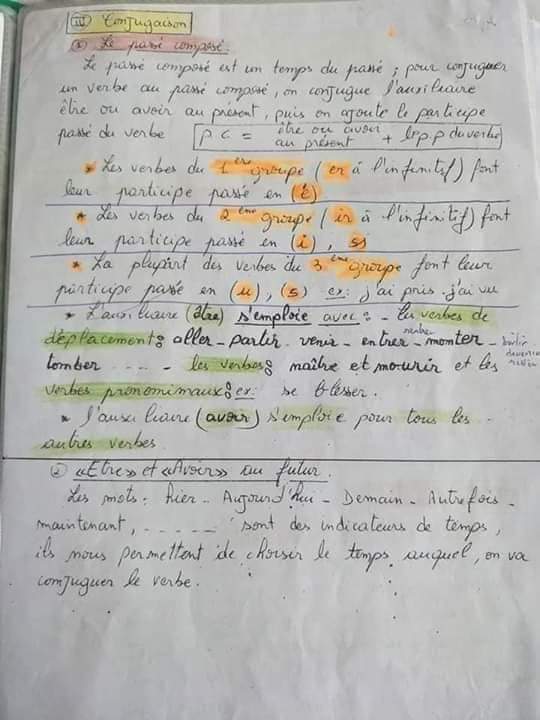 III Conjugaison
① Le passé composé.
Le passé composé est un temps du passé ; pour conjuguer
un verbe au passé composé, on conjugue l'auxiliaire
être ou avoir au présent, puis on ajoute le participe
passé du verbe p.c = être ou avoir au présent + le p.p du verbe
* Les verbes du 1ère groupe (er à l'infinitif) font
leur participe passé en (é)
* Les verbes du 2ème groupe (ir à l'infinitif) font
leur participe passé en (i), s)
* La plupart des verbes du 3ème groupe font leur
participe passé en (u), (s) ex: j'ai pris - j'ai vu
* L'auxiliaire (être) s'emploie avec : - les verbes de
déplacement : aller - partir - venir - entrer - monter -
tomber .... - les verbes : naître et mourir et les
verbes pronominaux : ex: se blesser.
* l'auxiliaire (avoir) s'emploie pour tous les
autres verbes
② «Etre» et «Avoir» au futur.
Les mots : hier - Aujourd'hui - Demain - Autrefois -
maintenant, ..... sont des indicateurs de temps,
ils nous permettent de choisir le temps auquel, on va
conjuguer le verbe.